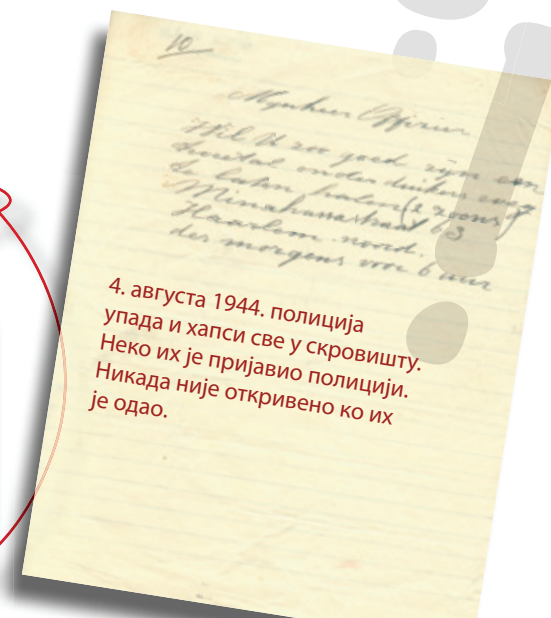 10
Mijnheer Officier
Wil U zoo goed zijn een
tal onderduikers weg
te laten halen (2 zoons)
Minahassastraat 63
Haarlem noord.
des morgens voor 6 uur
4. августа 1944. полиција
упада и хапси све у скровишту.
Неко их је пријавио полицији.
Никада није откривено ко их
је одао.